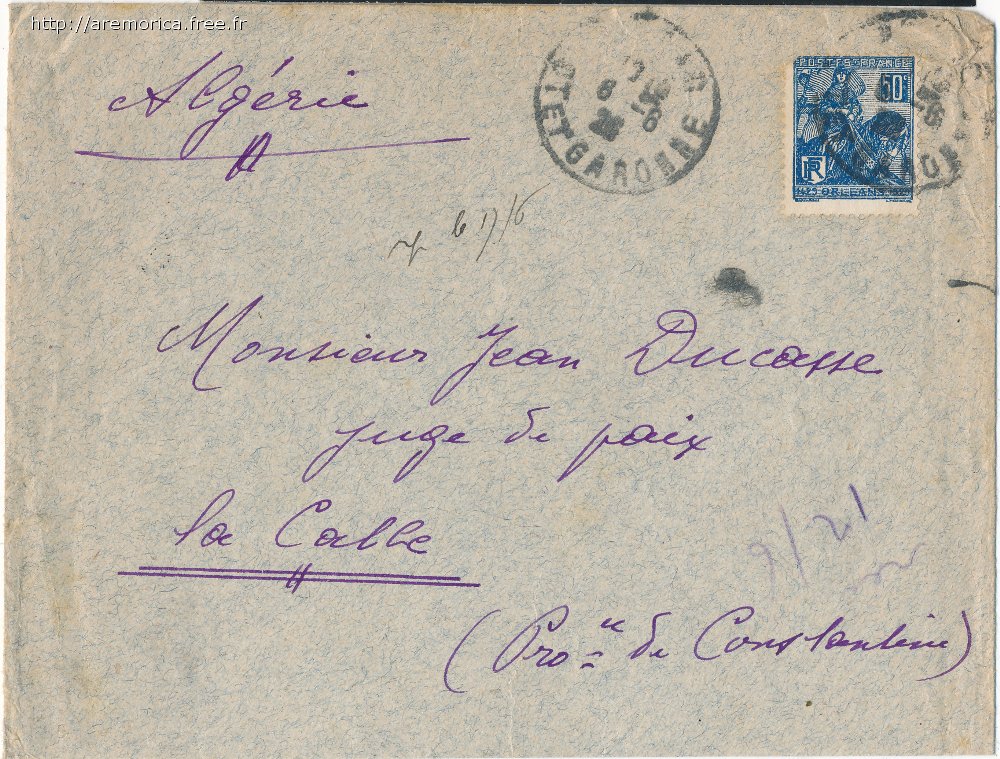 http://aremorica.free.fr
Algérie
T ET GARONNE
6
POSTES FRANCE
50c
RF
ORLEANS
GARONNE
rép le 17/6
Monsieur Jean Ducasse
juge de paix
la Calle
9/21
(Pro.ce de Constantine)